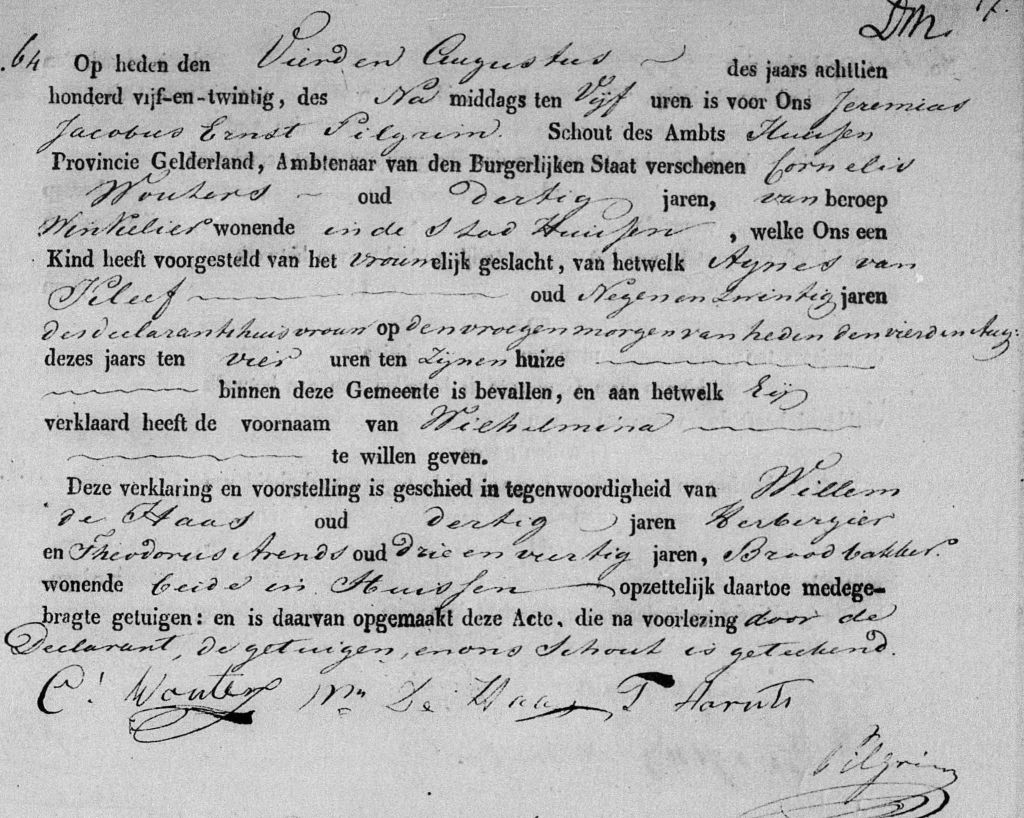 17.
Dm.
.64 Op heden den Vierden Augustus des jaars achttien
honderd vijf-en-twintig, des Na middags ten Vijf uren is voor Ons Jeremias
Jacobus Ernst Pilgrim. Schout des Ambts Huissen
Provincie Gelderland, Ambtenaar van den Burgerlijken Staat verschenen Cornelis
Wouters oud dertig jaren, van beroep
Winkelier wonende in de Stad Huissen, welke Ons een
Kind heeft voorgesteld van het vrouwelijk geslacht, van hetwelk Agnes van
Kleef oud Negen en twintig jaren
des declarants huisvrouw op den vroegen morgen van heden den vierden Aug:
dezes jaars ten vier uren ten Zijnen huize
binnen deze Gemeente is bevallen, en aan hetwelk Hij
verklaard heeft de voornaam van Wilhelmina
te willen geven.
Deze verklaring en voorstelling is geschied in tegenwoordigheid van Willem
de Haas oud dertig jaren Herbergier
en Theodorus Arends oud Drie en veertig jaren, Broodbakker.
wonende beide in Huissen opzettelijk daartoe medege-
bragte getuigen: en is daarvan opgemaakt deze Acte, die na voorlezing door de
Declarant, de getuigen, en ons Schout is geteekend.
C! Wouters Wm De Haas T Aarnts
Pilgrim